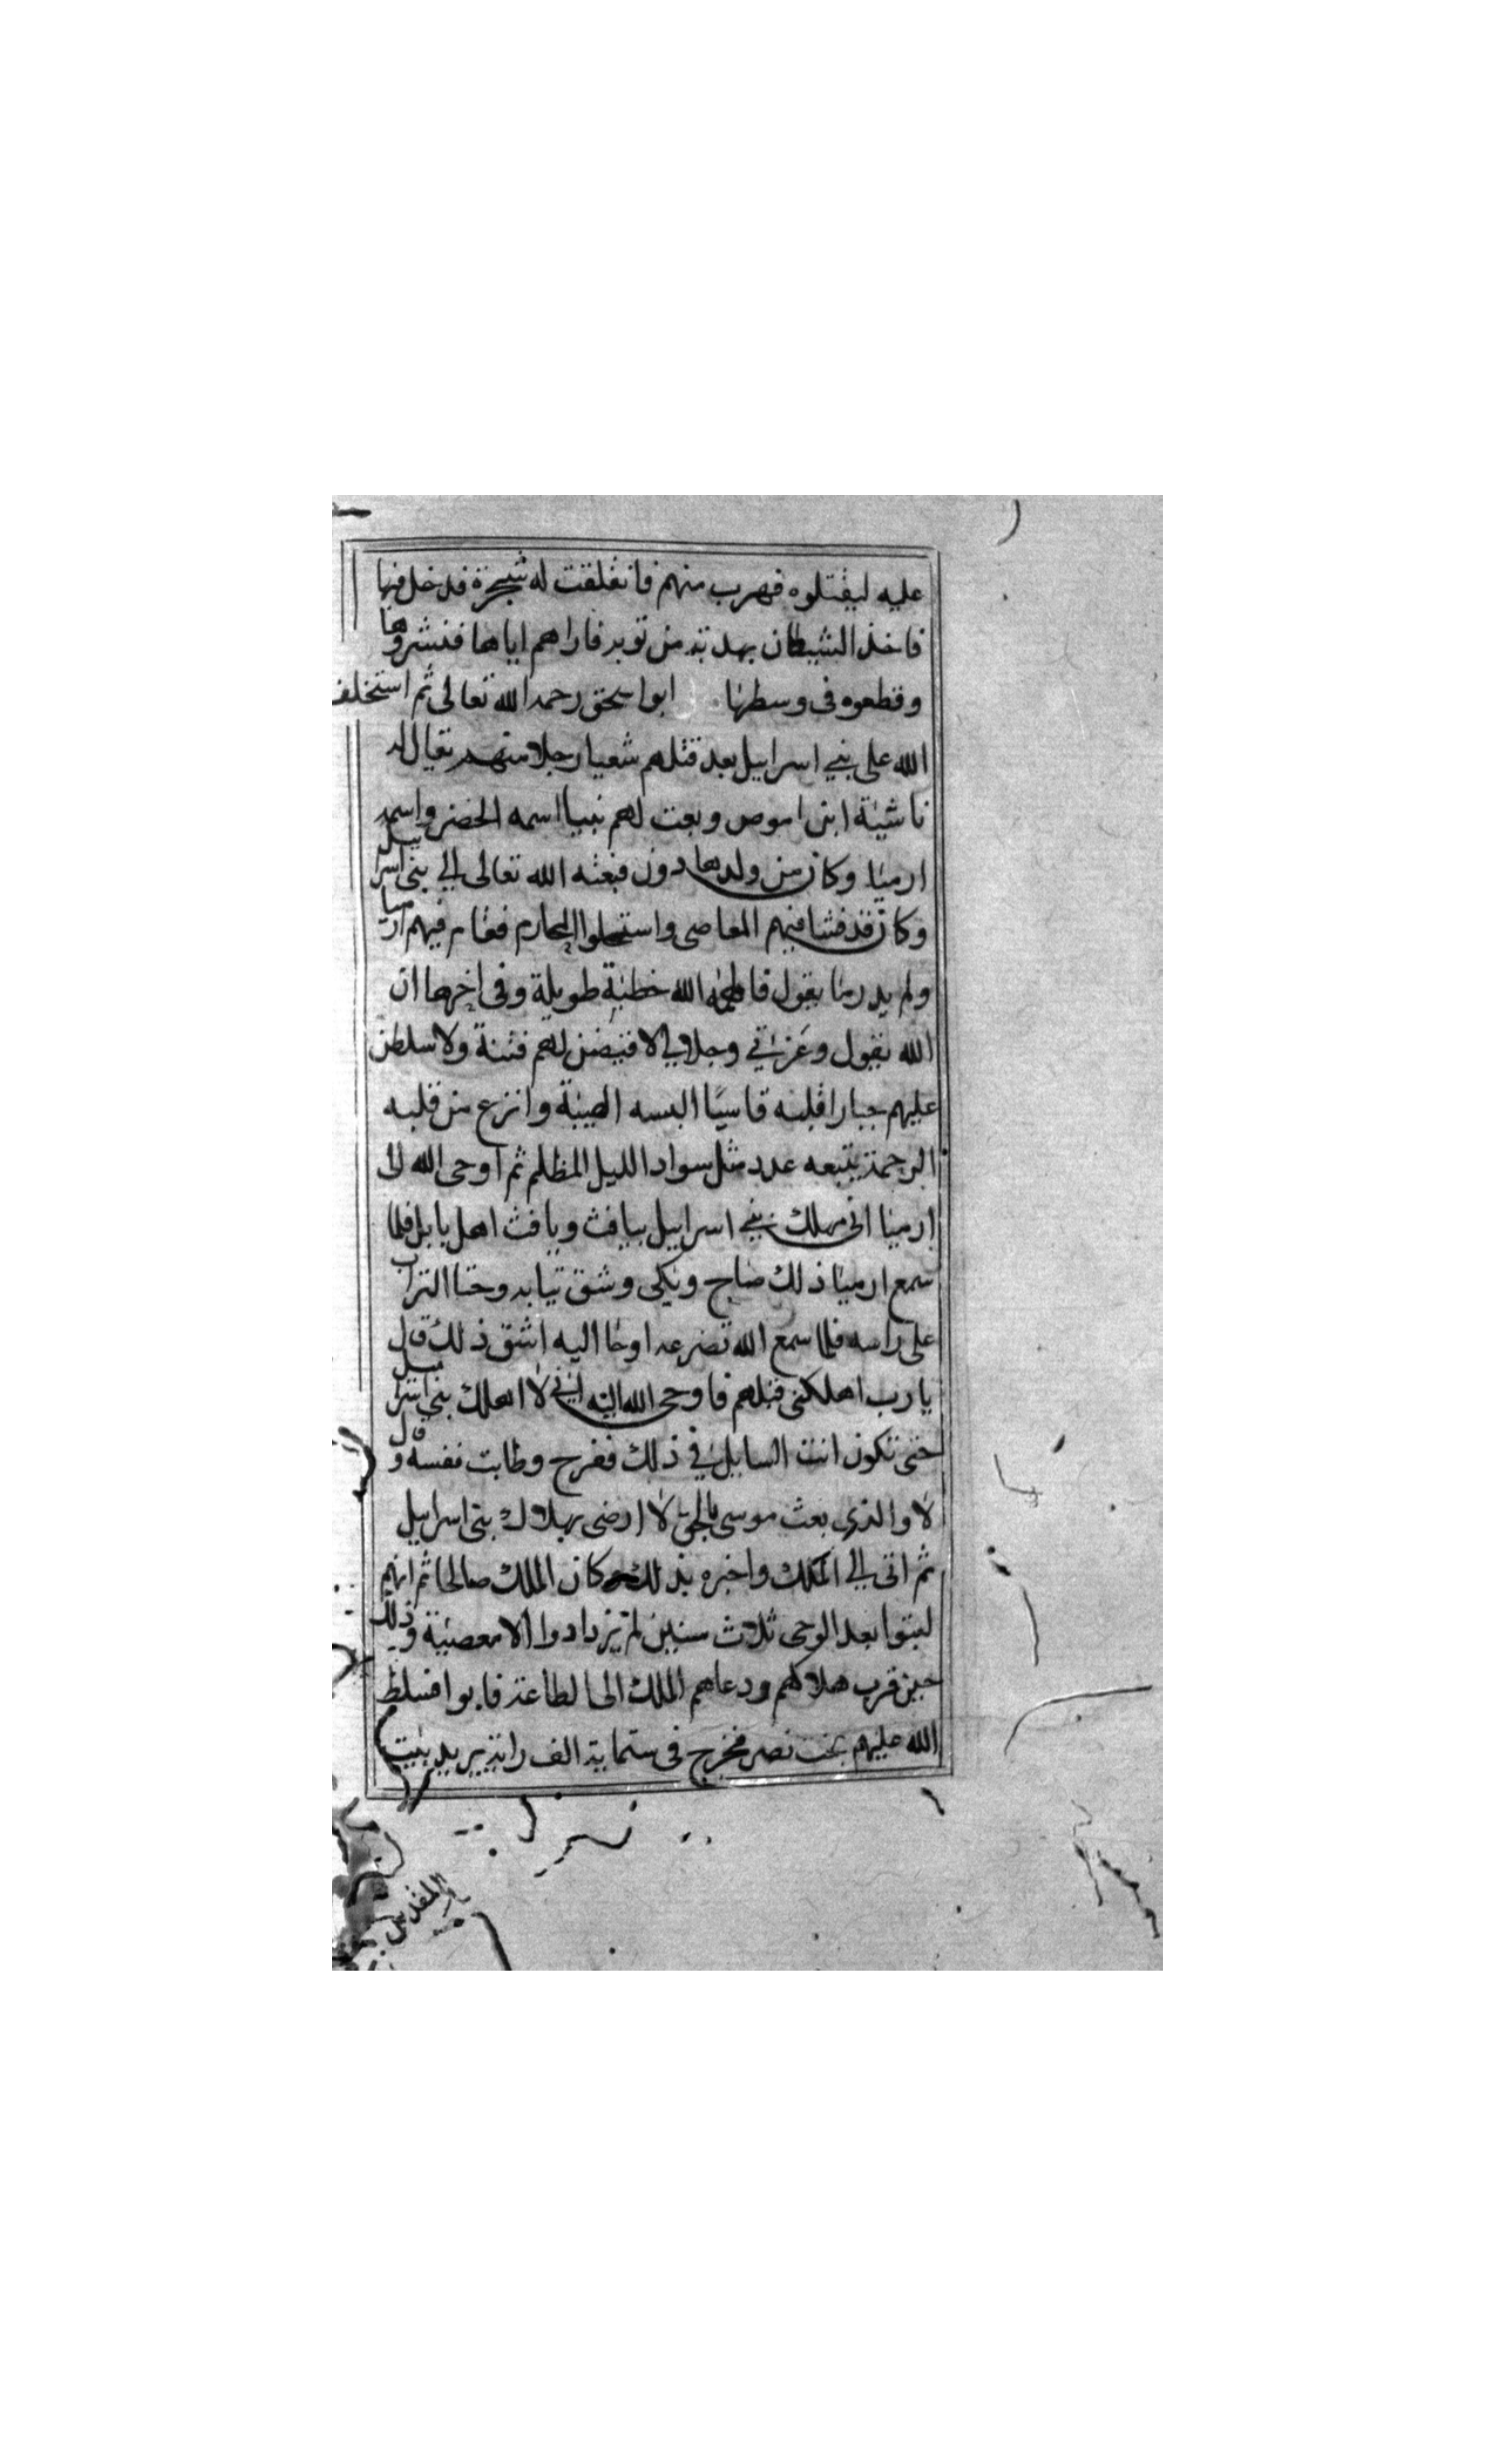 عليه ليقتلوه فهرب منهم فانفلقت له شجرة فدخل فيها
فاخذ الشيطان بهدبة من ثوبه فاراهم اياها فنشروها
وقطعوه في وسطها ابو اسحق رحمه الله تعالى ثم استخلف
الله على بني اسرايل بعد قتلهم شعيا رجلا منهم يقال له
ناشية ابن اموص وبعث لهم نبيا اسمه الخضر واسمه
ارميا وكان من ولد هارون فبعثه الله تعالى الي بني اسراييل
وكان قد فشا فيهم المعاصي واستحلوا المحارم فقام فيهم ارميا
ولم يدر ما يقول فالهمه الله خطبة طويلة وفي اخرها ان
الله يقول وعزتي وجلالي لاقيضن لهم فتنة ولاسلطن
عليهم جبارا قلبه قاسيا البسه الهيبة وانزع من قلبه
الرحمة يتبعه عدد مثل سواد الليل المظلم ثم اوحى الله الى
ارميا اني مهلك بني اسراييل بيافث ويافث اهل بابل فلما
سمع ارميا ذلك صاح وبكى وشق ثيابه وحثا التراب
على راسه فلما سمع الله تضرعه اوحا اليه اشق ذلك قال
يا رب اهلكني قبلهم فاوحى الله اليه اني لا اهلك بني اسراييل
حتى تكون انت السايل في ذلك ففرح وطابت نفسه وقال
لا والذي بعث موسى بالحق لا ارضى بهلاك بني اسراييل
ثم اتى الي الملك واخبره بذلك وكان الملك صالحا ثم انهم
لبثوا بعد الوحي ثلاث سنين لم يزدادوا الا معصية وذلك
حين قرب هلاكهم ودعاهم الملك الى الطاعة فابوا فسلط
الله عليهم بخت نصر فخرج في ستماية الف راية يريد بيت
المقدس